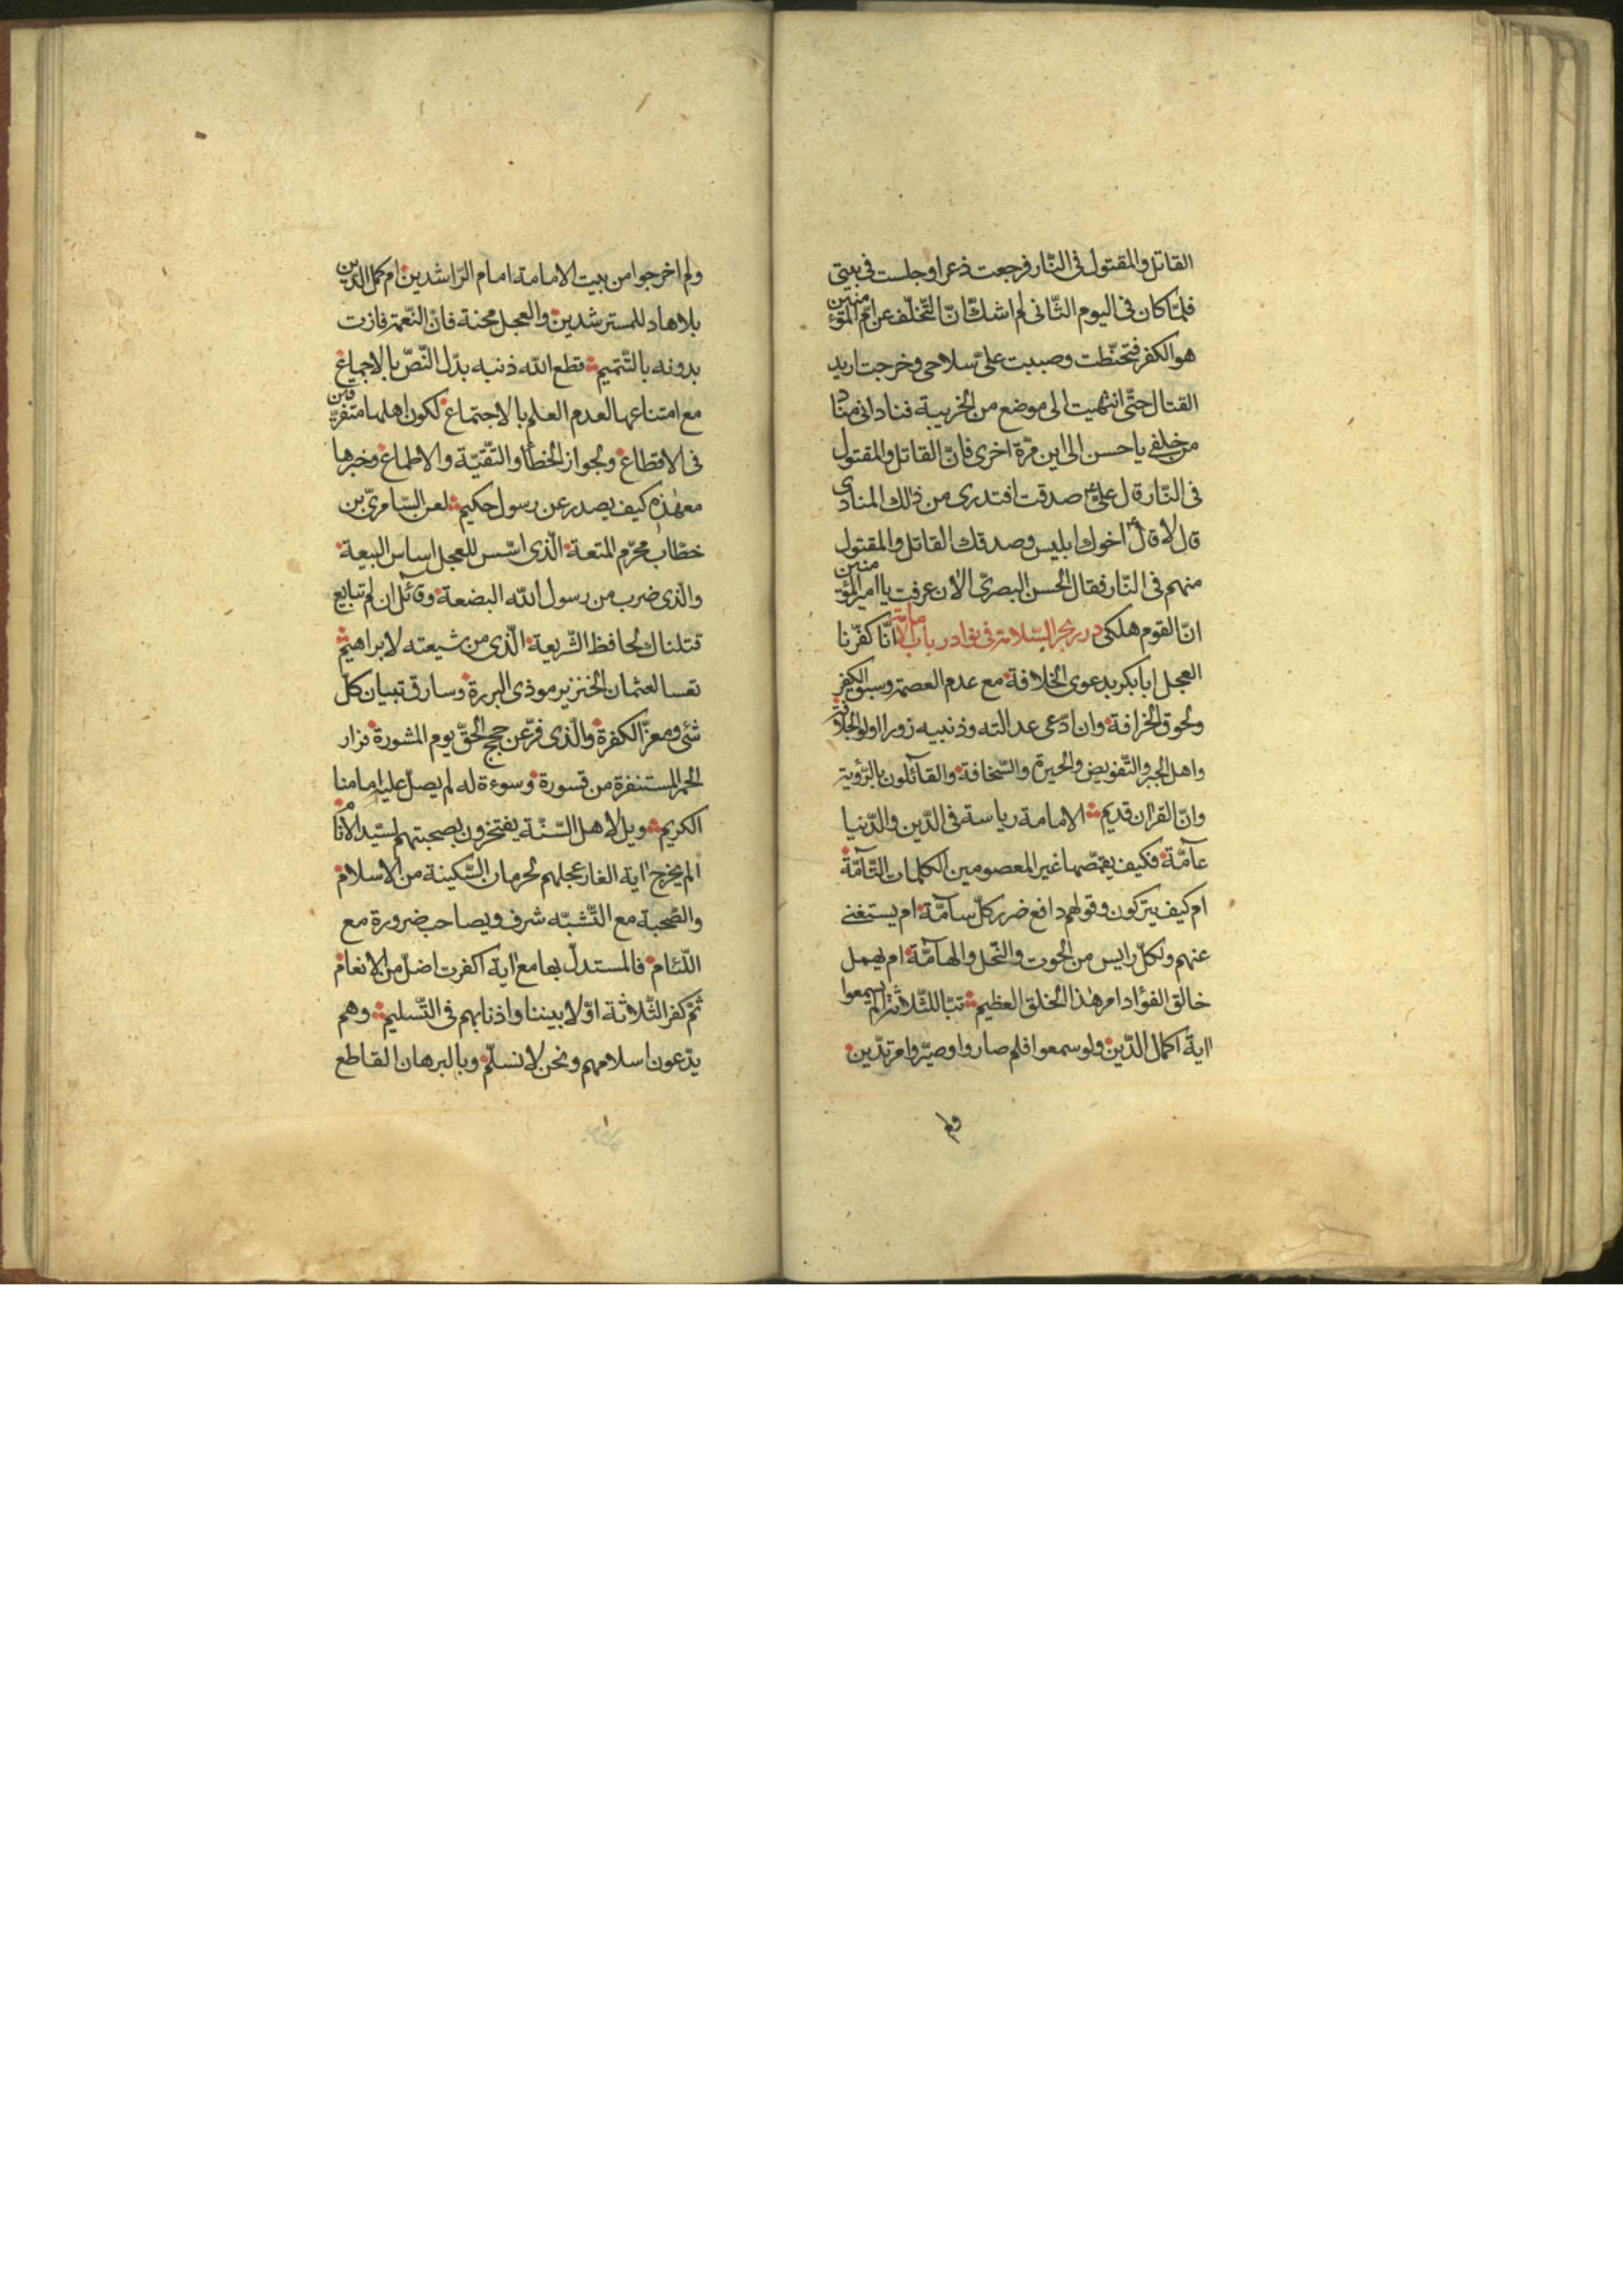 القاتل والمقتول فى النّار فرجعت ذعرا وجلست فى بيتى
فلمّا كان فى اليوم الثّانى لم اشكّ انّ التّخلّف عن امّ المؤمنين
هو الكفر فتحنّطت وصببت علىّ سلاحى وخرجت اريد
القتال حتّى انتهيت الى موضع من الخريبة فنادانى مناد
من خلفى يا حسن الى اين مرّة اخرى فانّ القاتل والمقتول
فى النّار قال علىّ صدقت افتدرى من ذلك المنادى
قال لا قال اخوك ابليس وصدقك القاتل والمقتول
منهم فى النّار فقال الحسن البصرىّ الان عرفت يا امير المؤمنين
انّ القوم هلكى درر بحر السّلامة فى نوادر باب الامامة انّا كفّرنا
العجل ابابكر بدعوى الخلافة مع عدم العصمة وسبق الكفر
ولحوق الخرافة وان ادّعى عدالته وذنبيه زورا اولو الجلافة
واهل الجبر والتّفويض والحيرة والسّخافة والقآئلون بالرّؤية
وانّ القران قديم الامامة رياسة فى الدّين والدّنيا
عآمّة فكيف يقمّصها غير المعصومين الكلمات التّآمّة
ام كيف يتركون وقولهم دافع ضرر كلّ سآمّة ام يستغنى
عنهم ولكلّ رايس من الحوت والنّحل والهآمّة ام يهمل
خالق الفؤاد امر هذا الخلق العظيم تبّا للثّلاثة الم يسمعوا
اية اكمال الدّين ولو سمعوا فلم صاروا وصيّروا مرتدّين
ولم
ولم اخرجوا من بيت الامامة امام الرّاشدين ام كمل الدّين
بلا هاد للمسترشدين والعجل محنة فانّ النّعمة فازت
بدونه بالتّتميم قطع اللّه ذنبه بدّل النّصّ بالاجماع
مع امتناعها لعدم العلم بالاجتماع لكون اهلها متفرّقين
فى الاقطاع ولجواز الخطأ والتقيّة والاطماع وخبرها
معهذه كيف يصدر عن رسول حكيم لعن السّامرىّ بن
خطّاب محرّم المتعة الّذى اسّس للعجل اساس البيعة
والّذى ضرب من رسول اللّه البضعة وقآئل ان لم تبايع
قتلناك لحافظ الشّريعة الّذى من شيعته لابراهيم
تعسا لعثمان الخنزير موذى البررة وسارق تبيان كلّ
شئ ومعزّ الكفرة والّذى فرّ عن حجج الحقّ يوم المشورة فرار
الحمر المستنفرة من قسورة وسوءة له لم يصلّ عليه امامنا
الكريم ويل لاهل السّنّة يفتخرون بصحبتهم لسيّد الانام
الم يخرج اية الغار عجلهم لحرمان السّكينة من الاسلام
والصّحبة مع التّشبّه شرف ويصاحب ضرورة مع
اللّئام فالمستدلّ بها مع اية اكفرت اضلّ من الانعام
ثمّ كفر الثّلاثة اوّلا بيننا واذنابهم فى التّسليم وهم
يدّعون اسلامهم ونحن لا نسلّم وبالبرهان القاطع